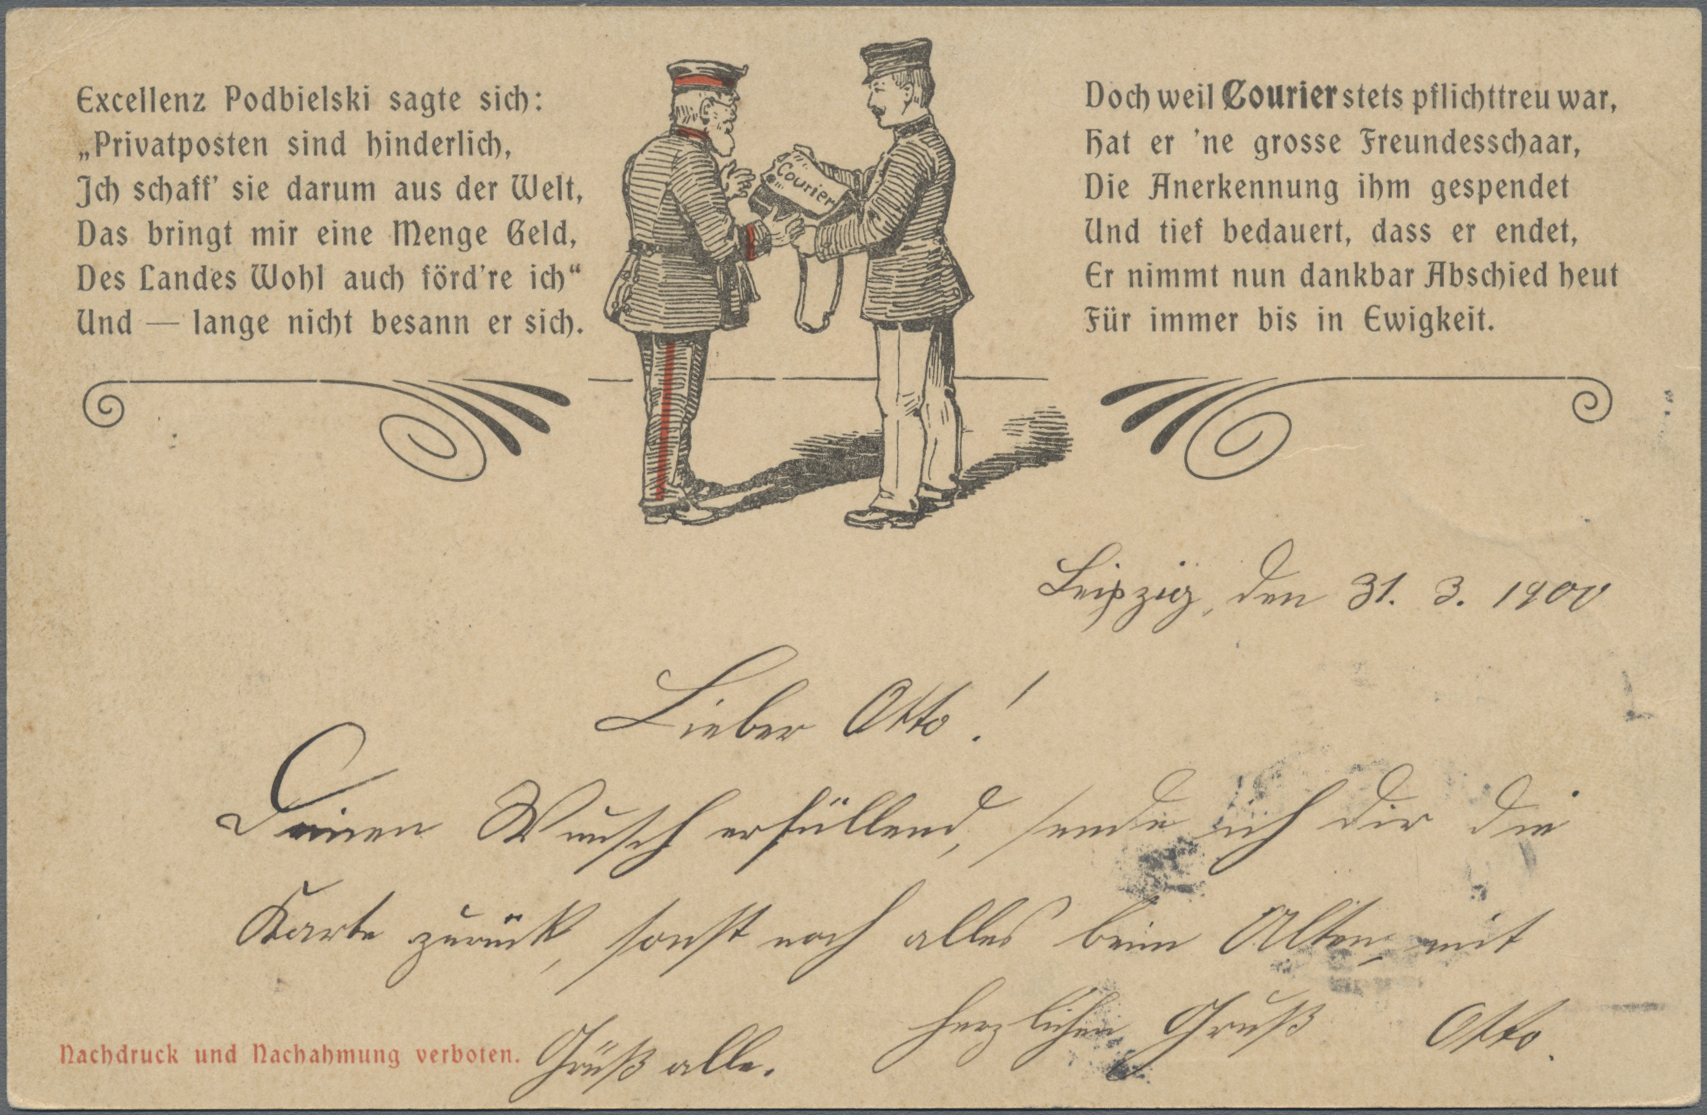 Excellenz Podbielski sagte sich:
„Privatposten sind hinderlich,
Ich schaff' sie darum aus der Welt,
Das bringt mir eine Menge Geld,
Des Landes Wohl auch förd're ich“
Und — lange nicht besann er sich.
Courier
Doch weil Courier stets pflichttreu war,
Hat er 'ne grosse Freundesschaar,
Die Anerkennung ihm gespendet
Und tief bedauert, dass er endet,
Er nimmt nun dankbar Abschied heut
Für immer bis in Ewigkeit.
Leipzig, den 31. 3. 1900
Lieber Otto!
Deinen Wunsch erfüllend, sende ich dir die
Karte zurück, sonst noch alles beim Alten, mit
herzlichen Gruß Otto.
Grüß alle.
Nachdruck und Nachahmung verboten.